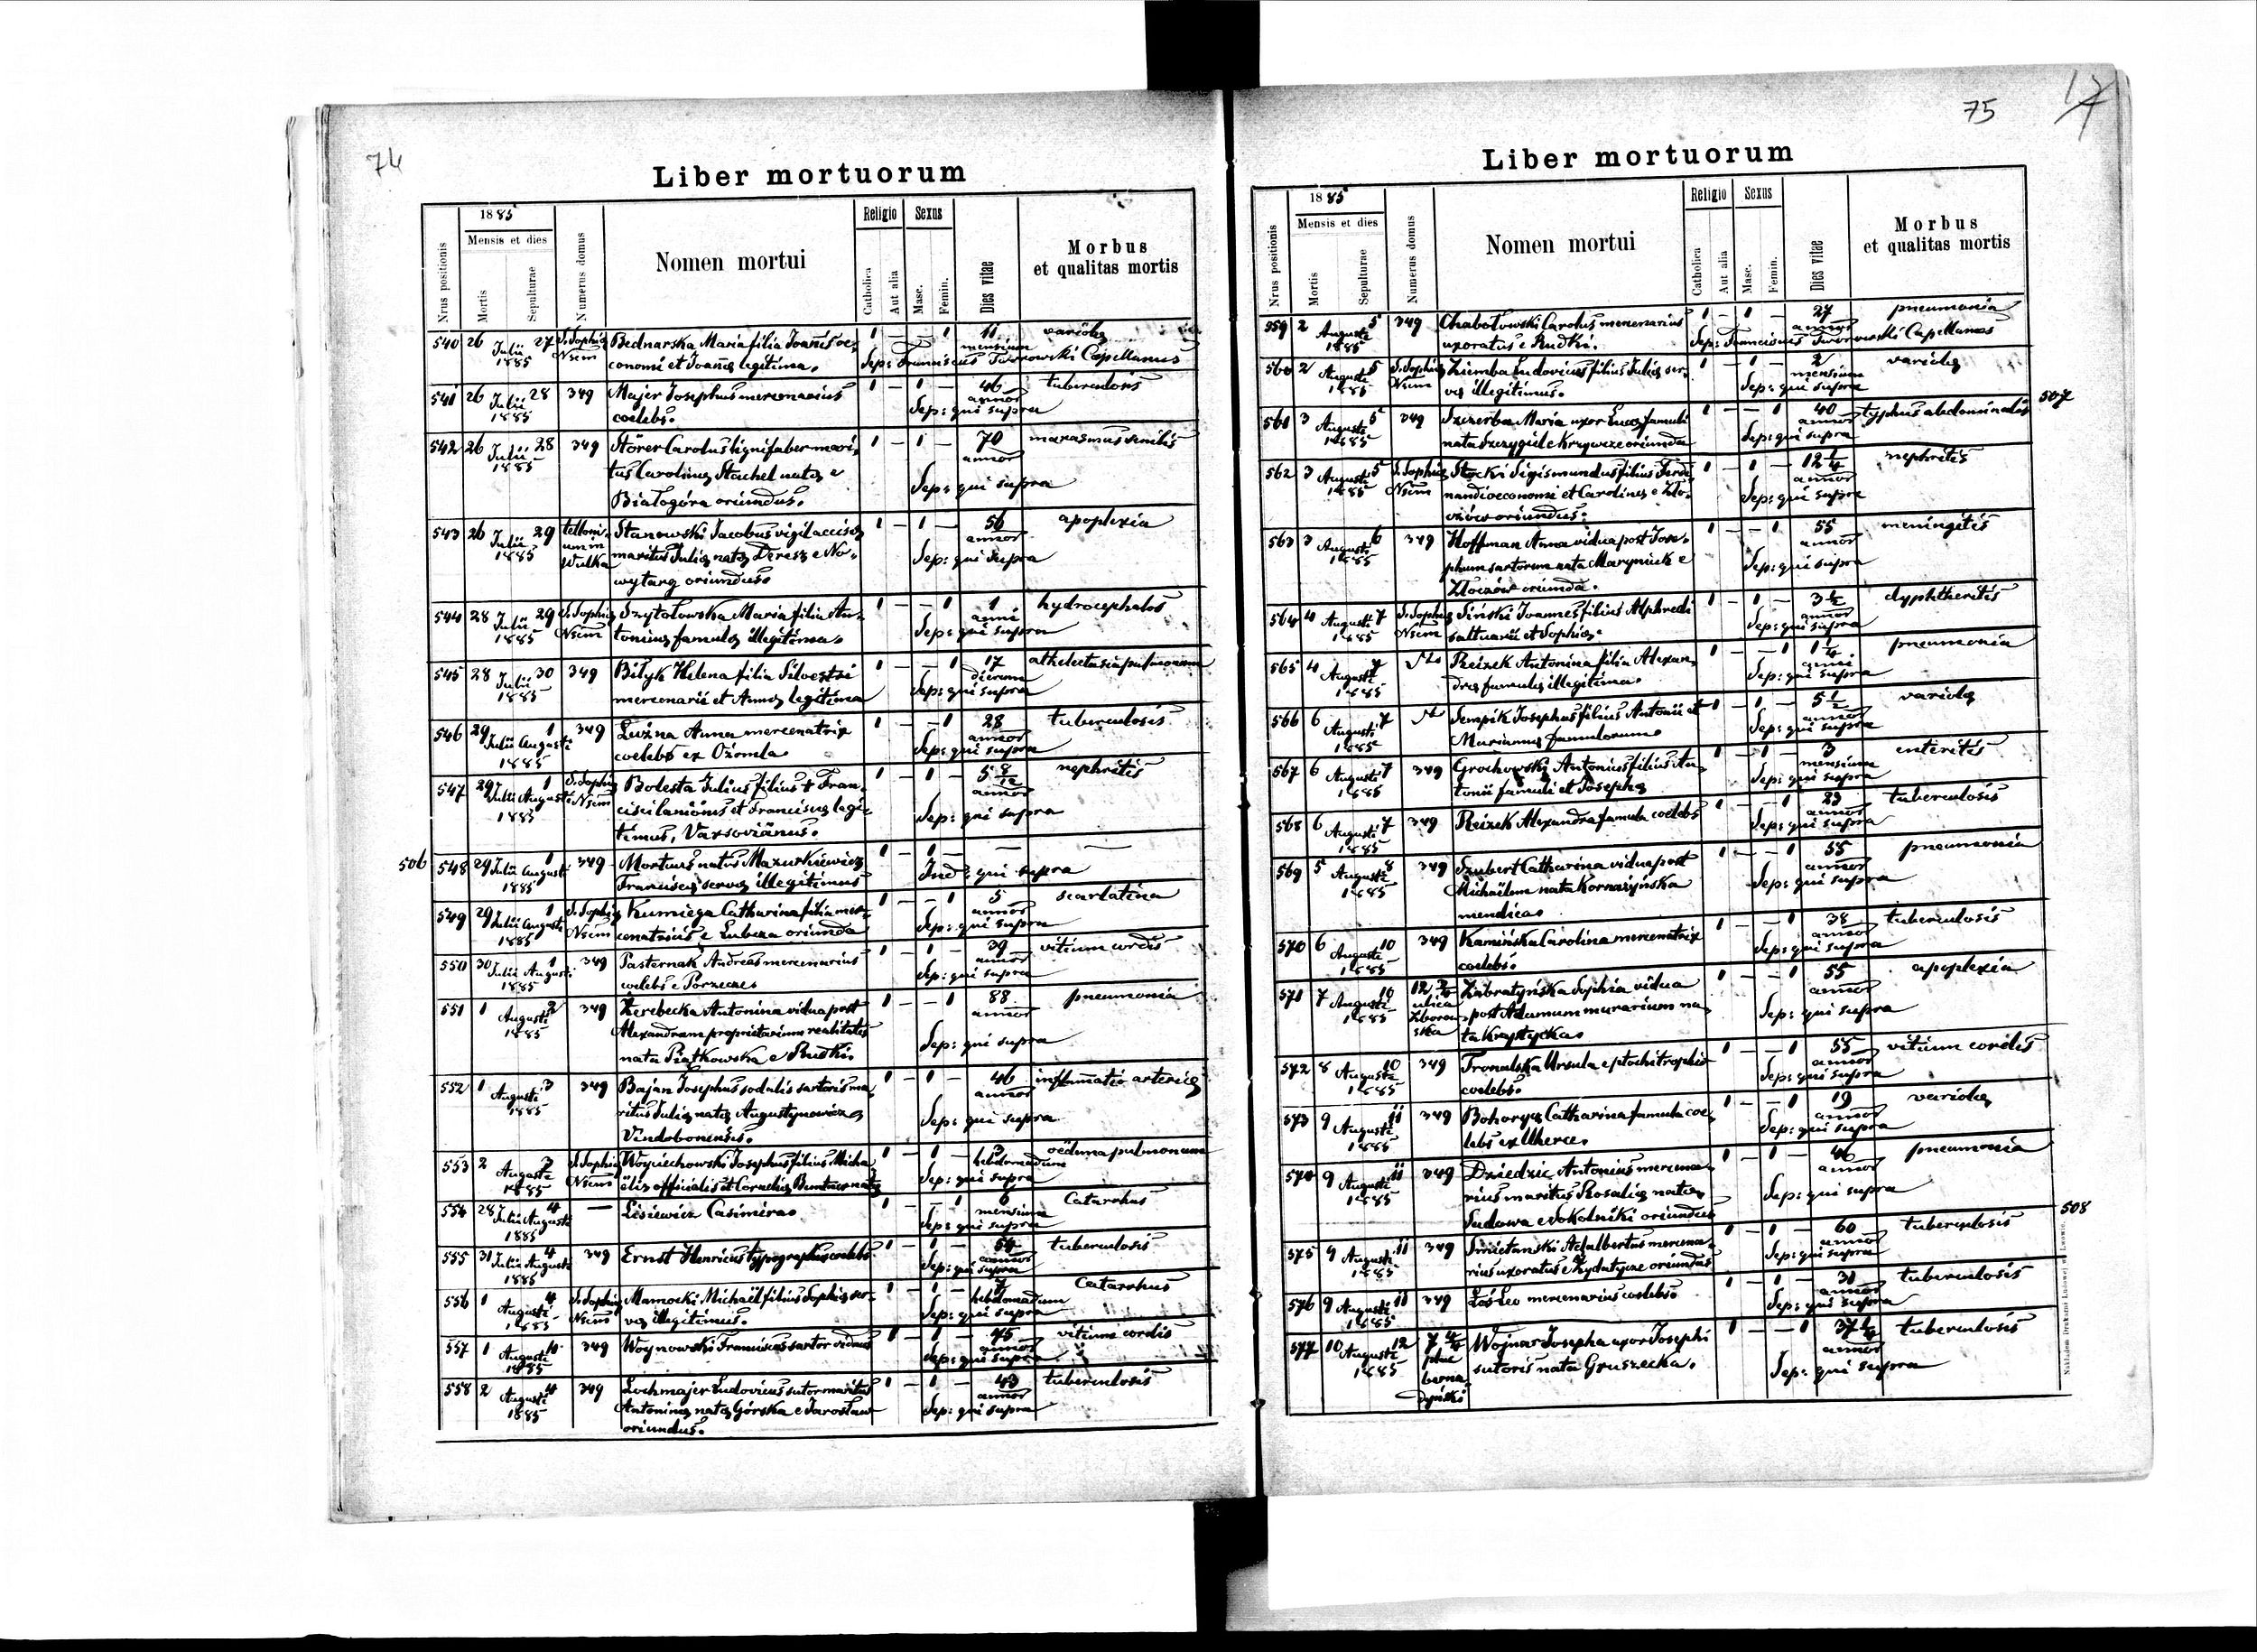 74
Liber mortuorum
1885
Mensis et dies
Nrus positionis
Mortis
Sepulturae
Numerus domus
Nomen mortui
Religio
Catholica
Aut alia
Sexus
Masc.
Femin.
Dies vitae
Morbus
et qualitas mortis
540 26 Julii 1885 27 S. Sophia Bednarska Maria filia Joannis oe- 1 — — 1 11 mensium variola
conomi et Joannae legitima. Sep: Franciscus Capellanus
541 26 Julii 1885 28 349 Majer Josephus mercenarius 1 — 1 — 46 annor tuberculosis
coelebs. Sep: qui supra
542 26 Julii 1885 28 349 Störer Carolus lignifaber mari- 1 — 1 — 70 annor marasmus senilis
tus Carolinae Stachel natae e
Białogóra oriundus. Sep: qui supra
543 26 Julii 1885 29 Wulka Stanowski Jacobus vigil accisae 1 — 1 — 56 annor apoplexia
maritus Juliae natae Deresz e No-
wytarg oriundus. Sep: qui supra
544 28 Julii 1885 29 S. Sophia Szytołowska Maria filia An- 1 — — 1 1 anni hydrocephalus
toninae famulae illegitima. Sep: qui supra
545 28 Julii 1885 30 349 Bilyk Helena filia Silvestri 1 — — 1 17 dierum athelectasia pulmonum
mercenarii et Annae legitima Sep: qui supra
546 29 Julii 1 Augusti 1885 349 Luzna Anna mercenatrix 1 — — 1 28 annor tuberculosis
coelebs ex Ożomla Sep: qui supra
547 29 Julii 1 Augusti 1885 S. Sophia Bolesta Julius filius † Fran- 1 — 1 — 5 8/12 annor nephritis
cisci lanionis et Franciscae legi-
timus, Varsovianus. Sep: qui supra
506
548 29 Julii 1 Augusti 1885 349 Mortuus natus Mazurkiewicz 1 — 1 — — —
Franciscae servae illegitimus qui supra
549 29 Julii 1 Augusti 1885 S. Sophia Kumiega Catharina filia mer- 1 — — 1 5 annor scarlatina
cenatricis e Lubcza oriunda Sep: qui supra
550 30 Julii 1 Augusti 1885 349 Pasternak Andreas mercenarius 1 — 1 — 39 annor vitium cordis
coelebs e Porzecze Sep: qui supra
551 1 Augusti 1885 2 349 Żerebecka Antonina vidua post 1 — — 1 88 annor pneumonia
Alexandrum proprietarium realitatis
nata Piątkowska e Rudki. Sep: qui supra
552 1 Augusti 1885 3 349 Bajan Josephus sodalis sartoris ma- 1 — 1 — 46 annor inflammatio arteriae
ritus Juliae natae Augustynowicz
Vindobonensis. Sep: qui supra
553 2 Augusti 1885 3 S. Sophia Woyciechowski Josephus filius Micha- 1 — 1 — 3 hebdomadum oedema pulmonum
ëlis officialis et Corneliae natae Sep: qui supra
554 28 Julii 4 Augusti 1885 — Lisiewicz Casimira 1 — 1 6 mensium Catarrhus
Sep: qui supra
555 31 Julii 4 Augusti 1885 349 Ernst Henricus typographus coelebs 1 — 1 — 54 annor tuberculosis
Sep: qui supra
556 1 Augusti 1885 4 S. Sophia Mamocki Michaël filius Sophiae ser- 1 — 1 — 7 hebdomadum Catarrhus
vae illegitimus. Sep: qui supra
557 1 Augusti 1885 4 349 Woynowski Franciscus sartor viduus 1 — 1 — 75 annor vitium cordis
Sep: qui supra
558 2 Augusti 1885 4 349 Lochmajer Ludovicus sutor maritus 1 — 1 — 43 annor tuberculosis
Antoninae natae Górska e Jarosław
oriundus. Sep: qui supra
75
Liber mortuorum
1885
Mensis et dies
Nrus positionis
Mortis
Sepulturae
Numerus domus
Nomen mortui
Religio
Catholica
Aut alia
Sexus
Masc.
Femin.
Dies vitae
Morbus
et qualitas mortis
559 2 Augusti 1885 5 349 Chabotowski Carolus mercenarius 1 — 1 — 27 annor pneumonia
uxoratus e Rudki. Sep: Franciscus Capellanus
560 2 Augusti 1885 5 S. Sophia Ziemba Ludovicus filius Juliae ser- 1 — 1 — 2 mensium variola
vae illegitimus. Sep: qui supra
507
561 3 Augusti 1885 5 349 Szczerba Maria uxor Lucae famuli 1 — — 1 40 annor typhus abdominalis
nata Szczygieł e Krzywcze oriunda Sep: qui supra
562 3 Augusti 1885 5 S. Sophia Stocki Sigismundus filius Ferdi- 1 — 1 — 12 1/4 annor nephritis
nandi oeconomi et Carolinae e Zło-
czów oriundus. Sep: qui supra
563 3 Augusti 1885 6 349 Hoffman Anna vidua post Jose- 1 — — 1 55 annor meningitis
phum sartorem nata Maryniuk e
Złoczów oriunda. Sep: qui supra
564 4 Augusti 1885 7 S. Sophia Siński Joannes filius Alphredi 1 — 1 — 3 1/2 annor dyphtheritis
saltuarii et Sophiae. Sep: qui supra
565 4 Augusti 1885 7 Reizek Antonina filia Alexan- 1 — — 1 1 1/4 anni pneumonia
drae famulae illegitima. Sep: qui supra
566 6 Augusti 1885 7 Sempik Josephus filius Antonii et 1 — 1 — 5 1/2 annor variola
Mariannae famulorum Sep: qui supra
567 6 Augusti 1885 7 349 Grochowski Antonius filius An- 1 — 1 — 3 mensium enteritis
tonii famuli et Josephae Sep: qui supra
568 6 Augusti 1885 7 349 Reizek Alexandra famula coelebs 1 — — 1 23 annor tuberculosis
Sep: qui supra
569 5 Augusti 1885 8 349 Szubert Catharina vidua post 1 — — 1 55 annor pneumonia
Michaëlem nata Kornazyńska
mendica Sep: qui supra
570 6 Augusti 1885 10 349 Kamińska Carolina mercenatrix 1 — — 1 38 annor tuberculosis
coelebs. Sep: qui supra
571 7 Augusti 1885 10 ulica Zborow-ska Zabratyńska Sophia vidua 1 — — 1 55 annor apoplexia
post Adamum murarium na-
ta Krystycka Sep: qui supra
572 8 Augusti 1885 10 349 Tronalska Ursula e ptochotrophio 1 — — 1 55 annor vitium cordis
coelebs. Sep: qui supra
573 9 Augusti 1885 11 349 Bohorys Catharina famula coe- 1 — — 1 19 annor variola
lebs ex Uherce. Sep: qui supra
574 9 Augusti 1885 11 349 Dziedzic Antonius mercena- 1 — 1 — 46 annor pneumonia
rius maritus Rosaliae natae
Sudowa e Sokolniki oriundus Sep: qui supra
508
575 9 Augusti 1885 11 349 Smietanski Adalbertus mercena- 1 — 1 — 60 annor tuberculosis
rius uxoratus e Zydatycze oriundus Sep: qui supra
576 9 Augusti 1885 11 349 Łoś Leo mercenarius coelebs 1 — 1 — 31 annor tuberculosis
Sep: qui supra
577 10 Augusti 1885 12 7 4/4 plac berna-dyński Wojnar Josepha uxor Josephi 1 — — 1 37 1/2 annor tuberculosis
sutoris nata Gruszecka. Sep: qui supra